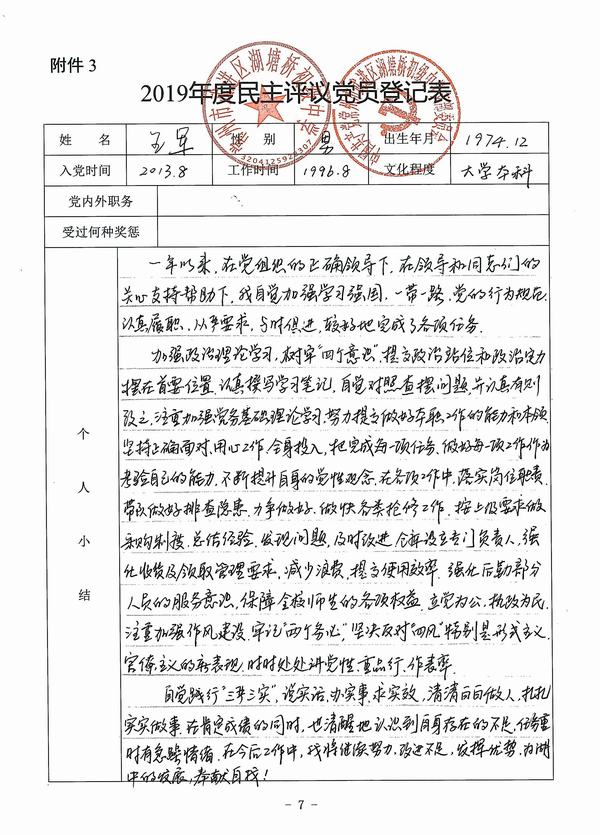 附件 3
2019年度民主评议党员登记表
姓 名 王军 性 别 男 出生年月 1974.12
入党时间 2013.8 工作时间 1996.8 文化程度 大学本科
党内外职务
受过何种奖惩
个人小结
一年以来，在党组织的正确领导下，在领导和同志们的
关心支持帮助下，我自觉加强学习强国、一带一路、党的行为规范，
认真履职，从严要求，与时俱进，较好地完成了各项任务。
加强政治理论学习，树牢"四个意识"，提高政治站位和政治定力
摆在首要位置，认真撰写学习笔记，自觉对照查摆问题，并认真有则
改之，注重加强党务基础理论学习，努力提高做好本职工作的能力和本领，
坚持正确面对，用心工作，全身投入，把完成每一项任务、做好每一项工作作为
考验自己的能力，不断提升自身的党性观念，在各项工作中，落实岗位职责，
带队做好排查隐患，力争做好、做快各类抢修工作，按上级要求做
采购制报，总结经验，发现问题，及时改进，设立专门负责人，强
化收货及领取管理要求，减少浪费，提高使用效率，强化后勤部分
人员的服务意识，保障全校师生的各项权益，立党为公，执政为民，
注重加强作风建设，牢记"两个务必"，坚决反对"四风"特别是形式主义、
官僚主义的新表现，时时处处讲党性、重品行、作表率。
自觉践行"三严三实"，说实话、办实事、求实效，清清白白做人，扎扎
实实做事，在肯定成绩的同时，也清醒地认识到自身存在的不足，任务重
时有急躁情绪，在今后工作中，我将继续努力，改进不足，发挥优势，为湖
中的发展，奉献自我！
- 7 -
3204125924307